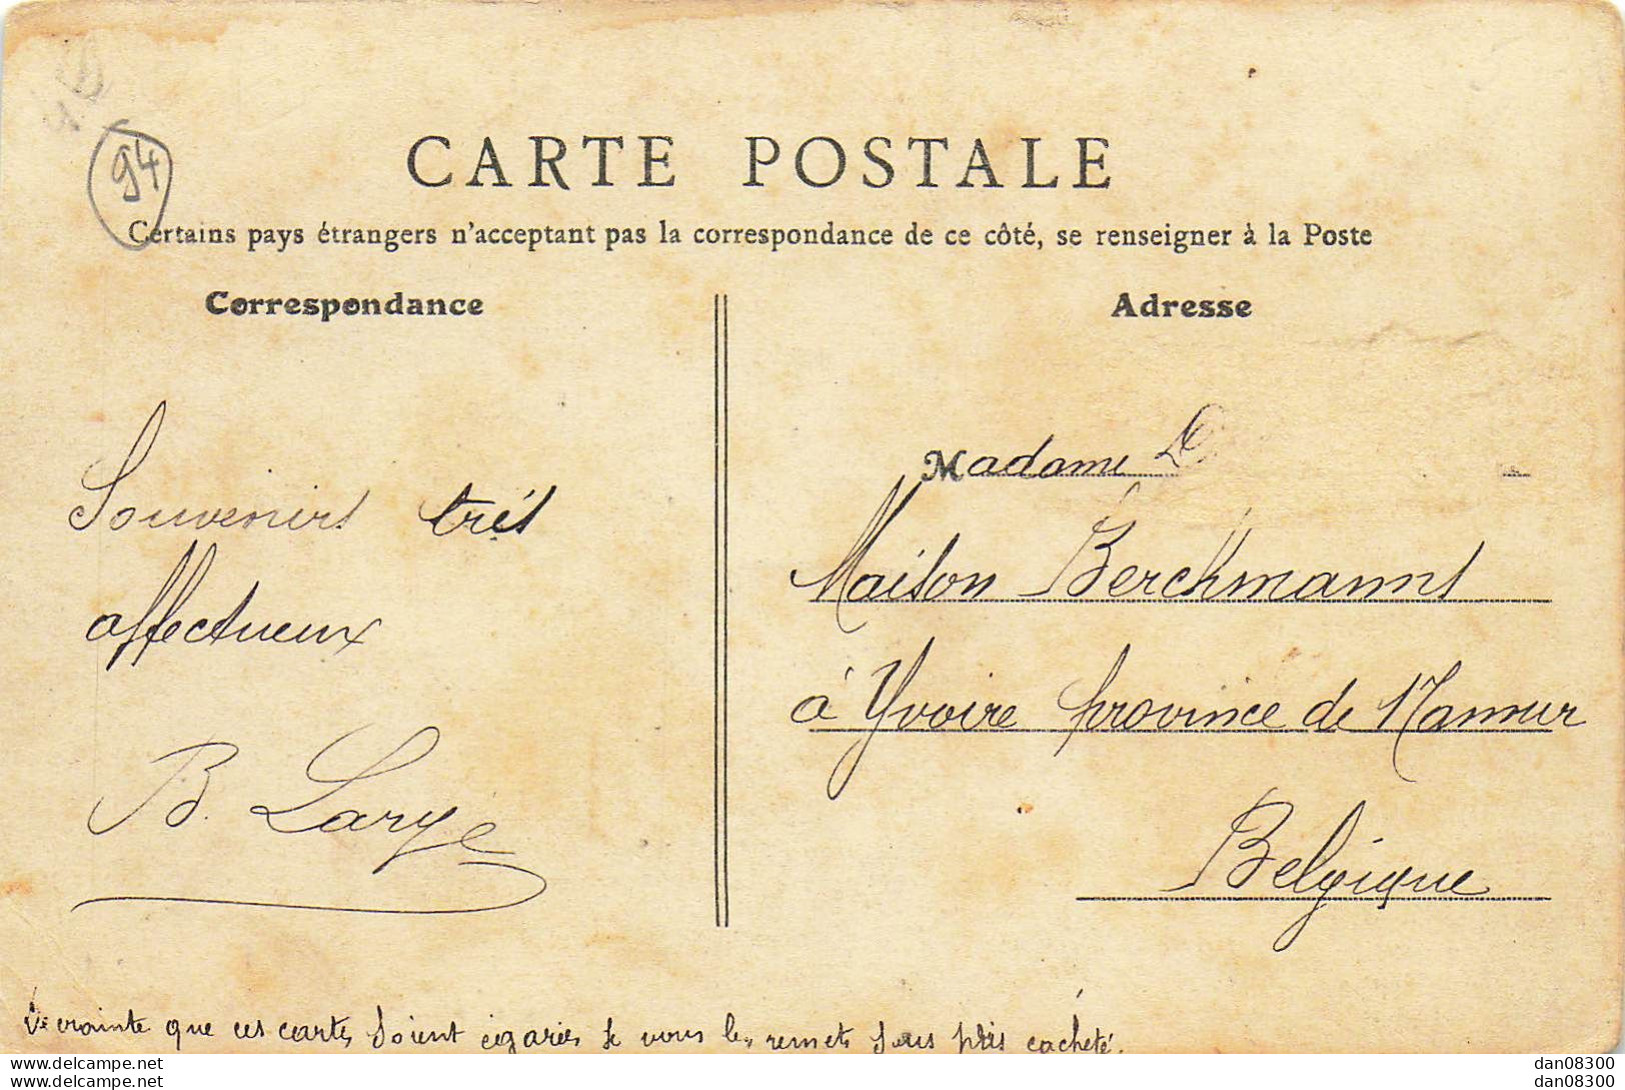 94
CARTE POSTALE
Certains pays étrangers n'acceptent pas la correspondance de ce côté, se renseigner à la Poste
Correspondance
Souvenirs très
affectueux
B. Larye
Adresse
Madame
Maison Berckmanns
à Yvoire province de Namur
Belgique
De crainte que ces cartes soient égarées je vous les remets sous plis cacheté.
dan08300
dan08300